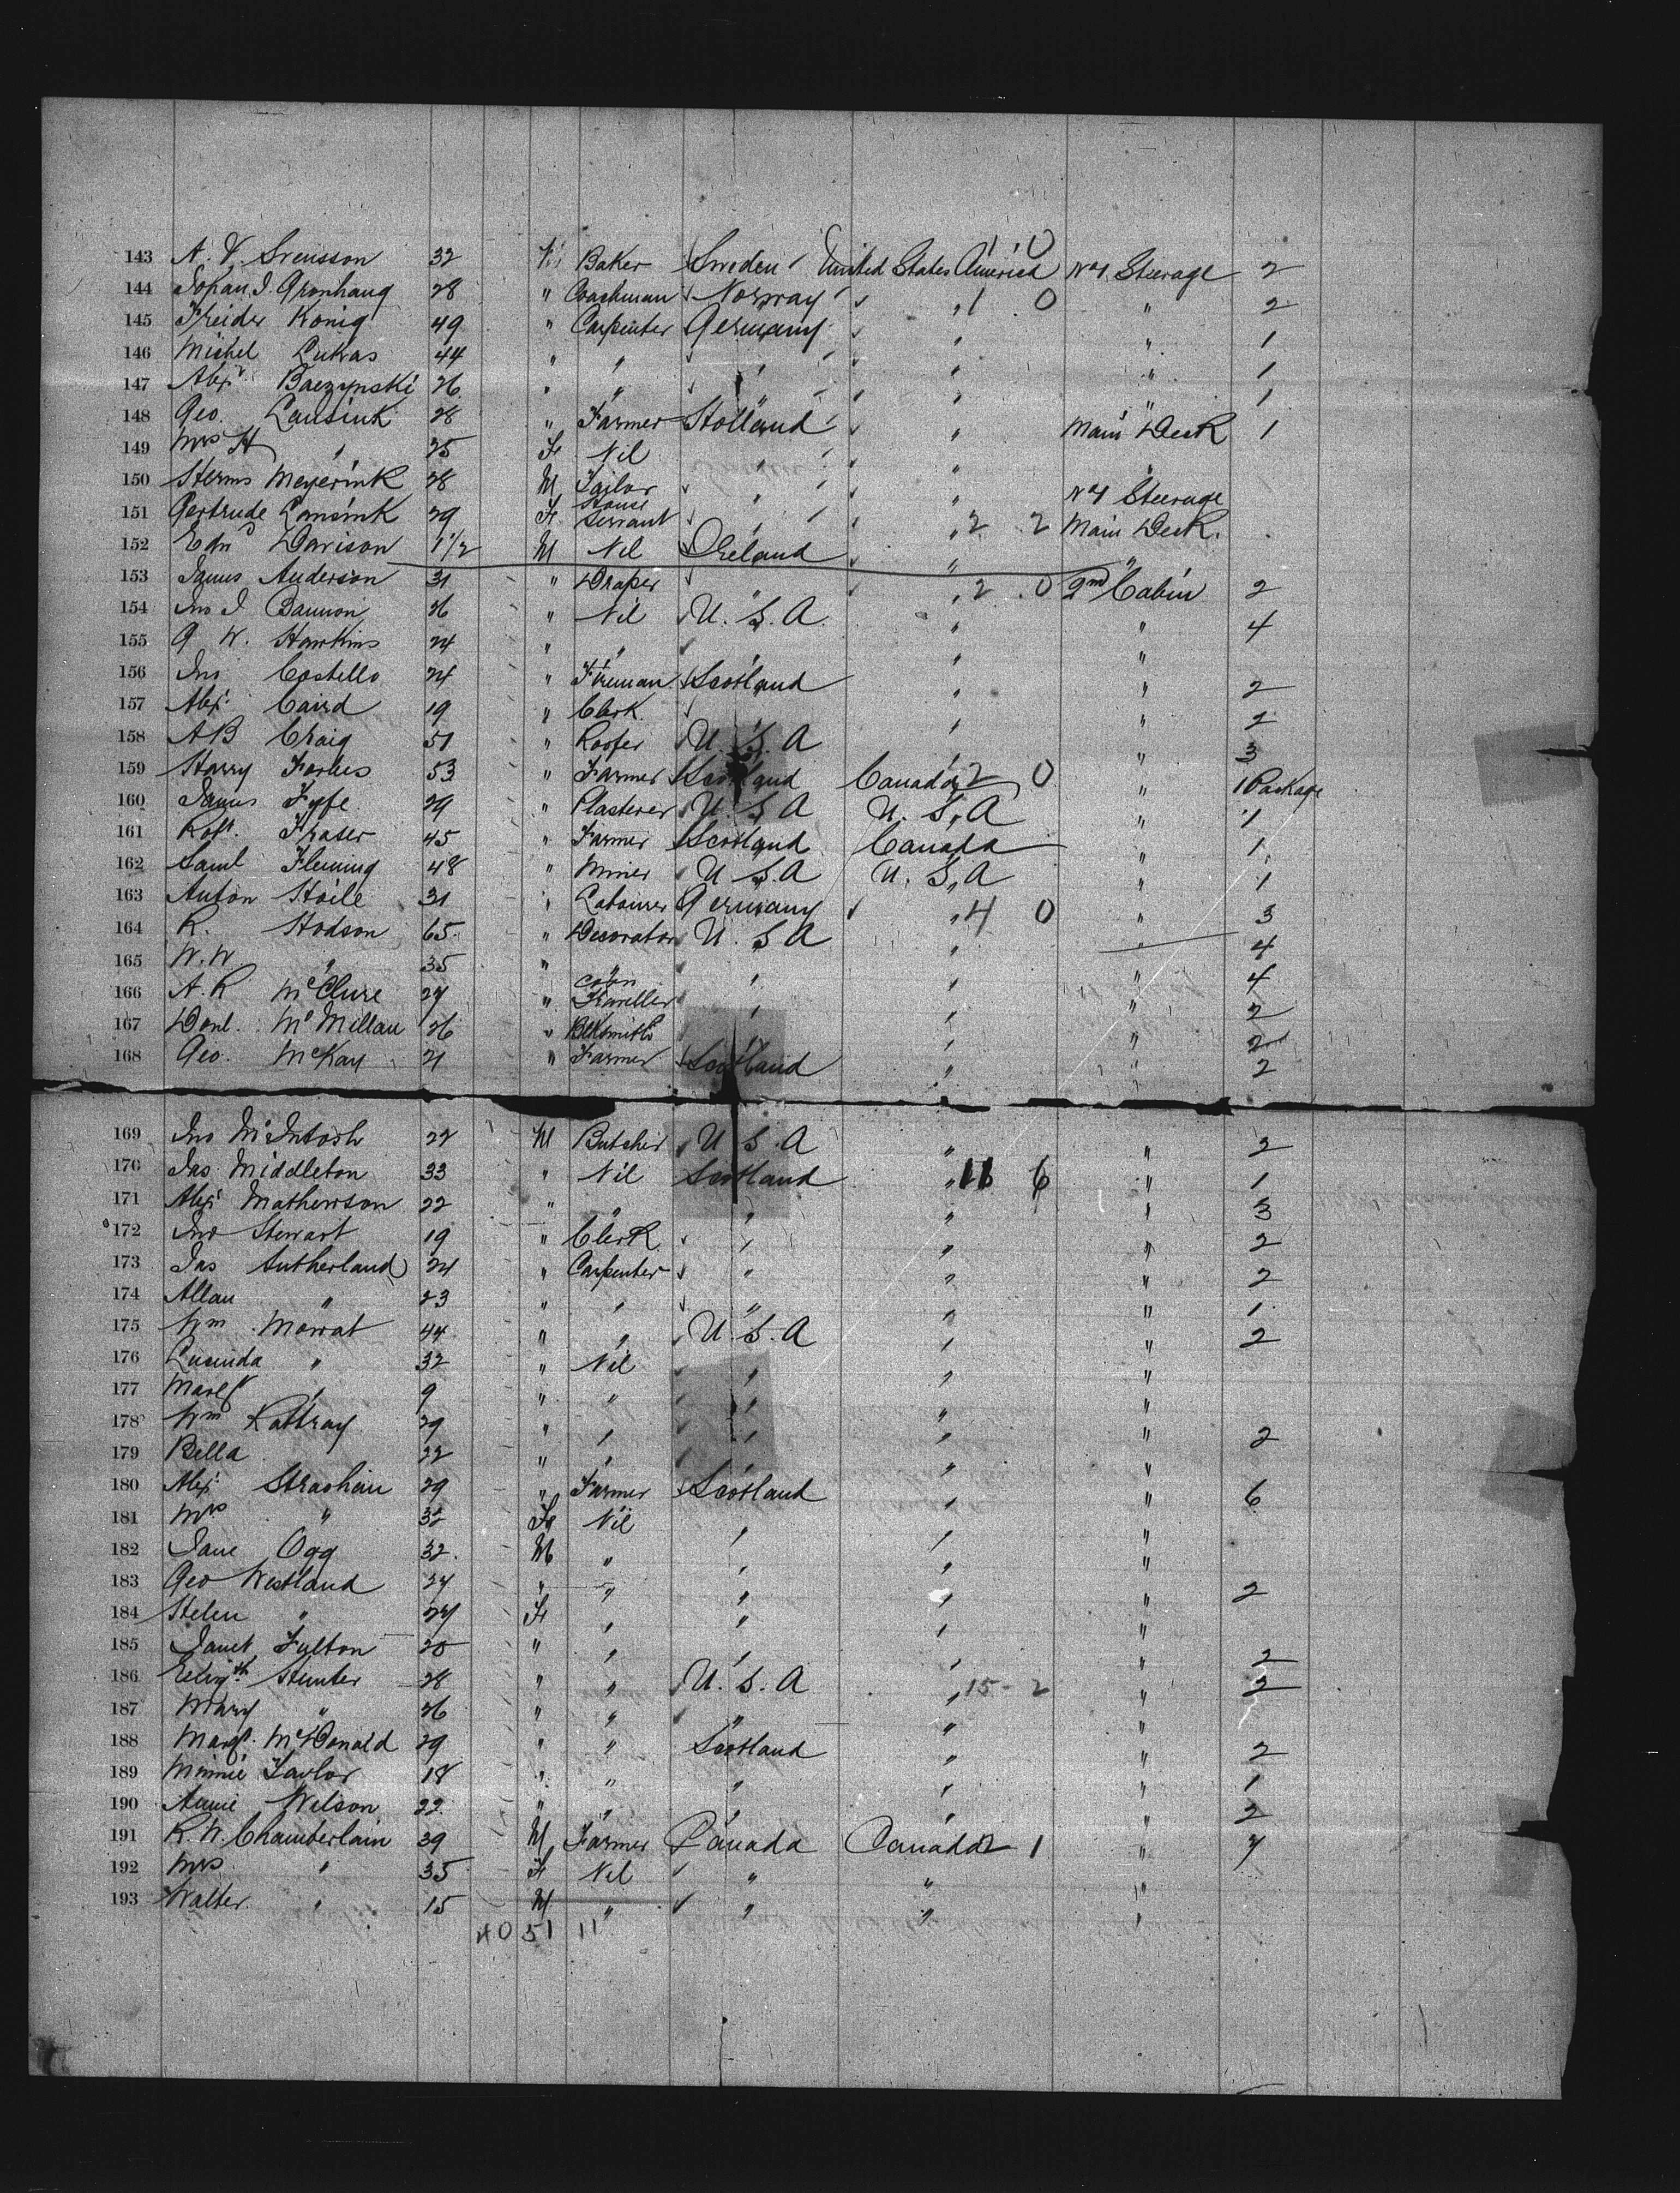 143 A. V. Svensson 32 M Baker Sweden United States America No 1 Steerage 2
144 Johan J. Gronhaug 28 " Coachman Norway " 1 0 " 2
145 Freider König 49 " Carpenter Germany " " 1
146 Michel Lukas 44 " " " " " 1
147 Alexr. Baczynski 26 " " " " " 1
148 Geo. Lansink 28 " Farmer Holland " Main Deck 1
149 Mrs H " 25 F Nil " "
150 Herms Meyerink 28 M Tailor " " No 1 Steerage
151 Gertrude Lansink 29 F House Servant " " 2 2 Main Deck.
152 Edwd Davison 1 1/2 M Nil Ireland " "
153 James Anderson 31 " Draper " " 2 0 2nd Cabin 2
154 Jno J. Bannon 26 " Nil U. S. A. " " 4
155 G W. Hawkins 24 " " " " "
156 Jno Costello 24 " Fireman Scotland " " 2
157 Alexr. Caird 19 " Clerk " " " 2
158 A B Craig 51 " Roofer U. S. A " " 3
159 Harry Forbes 53 " Farmer Scotland Canada 2 0 " 1 Package
160 James Fyfe 29 " Plasterer U. S A U. S. A " 1
161 Robt. Fraser 45 " Farmer Scotland Canada " 1
162 Saml Fleming 48 " Miner U S. A U. S. A " 1
163 Anton Hoile 31 " Labourer Germany " 4 0 " 3
164 R. Hodson 65 " Decorator U. S A " " 4
165 W. W. " 35 " " " " " 4
166 A. R McClure 27 " Com Traveller " " " 2
167 Donl. McMillan 26 " Blksmith " " " 2
168 Geo. McKay 21 " Farmer Scotland " " 2
169 Jno McIntosh 22 M Butcher U. S. A " " 2
170 Jas Middleton 33 " Nil Scotland " 11 6 " 1
171 Alexr Mathewson 22 " " " " " 3
172 Jno Stewart 19 " Clerk " " " 2
173 Jas Sutherland 24 " Carpenter " " " 2
174 Allan " 23 " " " " " 1
175 Wm Mowat 44 " " U. S. A " " 2
176 Lucinda " 32 " Nil " " "
177 Margt " 9 " " " " "
178 Wm Rattray 29 " " " " " 2
179 Bella 22 " " " " "
180 Alexr Strachan 29 " Farmer Scotland " " 6
181 Mrs " 32 F Nil " " "
182 Jane Ogg 32 M " " " "
183 Geo Westland 24 " " " " " 2
184 Helen " 27 F " " " "
185 Janet Fulton 20 " " " " " 2
186 Elizth Hunter 28 " " U. S. A " 15 - 2 " 2
187 Mary " 26 " " " " "
188 Margt. McDonald 29 " " Scotland " " 2
189 Minnie Taylor 18 " " " " " 1
190 Annie Wilson 22 " " " " " 2
191 R. W. Chamberlain 39 M Farmer Canada Canada 2 1 " 7
192 Mrs " 35 F Nil " " "
193 Walter " 15 M " " " "
40 51 11